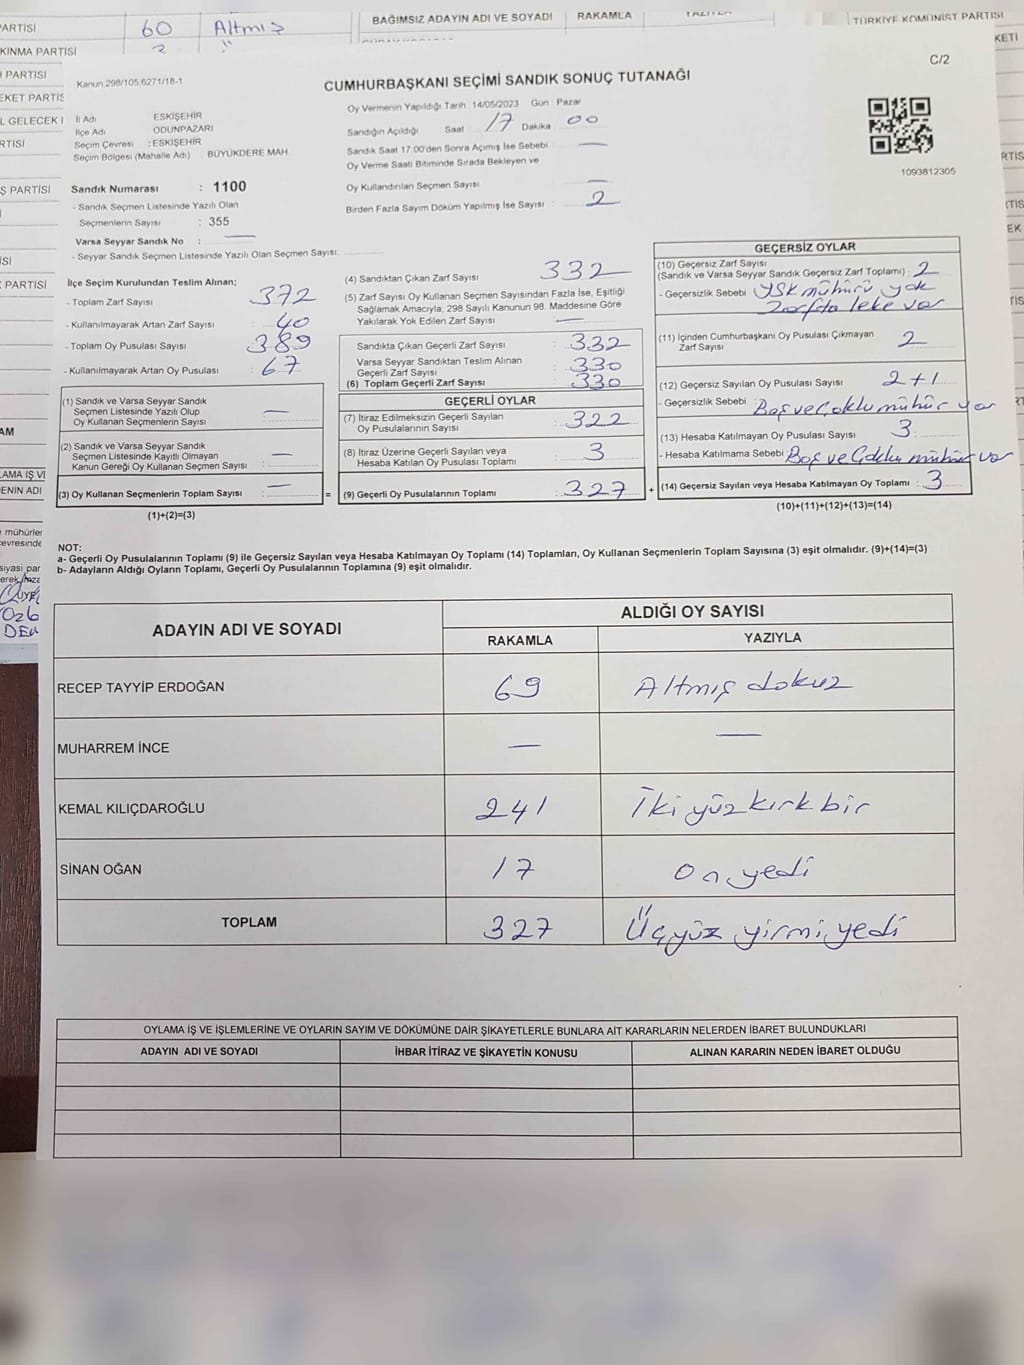 PARTİSİ 60 Altmış
KINMA PARTİSİ 2 "
PARTİSİ
EKET PARTİS
L GELECEK
RTİSİ
Ş PARTİSİ
PARTİSİ
BAĞIMSIZ ADAYIN ADI VE SOYADI RAKAMLA YAZIYLA
TÜRKİYE KOMÜNİST PARTİSİ
KETİ
C/2
Kanun 298/105,6271/18-1
CUMHURBAŞKANI SEÇİMİ SANDIK SONUÇ TUTANAĞI
1093812305
İl Adı ESKİŞEHİR
İlçe Adı ODUNPAZARI
Seçim Çevresi : ESKİŞEHİR
Seçim Bölgesi (Mahalle Adı) BÜYÜKDERE MAH.
Sandık Numarası : 1100
- Sandık Seçmen Listesinde Yazılı Olan
Seçmenlerin Sayısı : 355
Varsa Seyyar Sandık No : —
- Seyyar Sandık Seçmen Listesinde Yazılı Olan Seçmen Sayısı:
Oy Vermenin Yapıldığı Tarih 14/05/2023 Gün Pazar
Sandığın Açıldığı Saat 17 Dakika 00
Sandık Saat 17.00'den Sonra Açımış İse Sebebi —
Oy Verme Saati Bitiminde Sırada Bekleyen ve
Oy Kullandırılan Seçmen Sayısı —
Birden Fazla Sayım Döküm Yapılmış İse Sayısı : 2
İlçe Seçim Kurulundan Teslim Alınan;
- Toplam Zarf Sayısı : 372
- Kullanılmayarak Artan Zarf Sayısı : 40
- Toplam Oy Pusulası Sayısı : 389
- Kullanılmayarak Artan Oy Pusulası : 67
(1) Sandık ve Varsa Seyyar Sandık
Seçmen Listesinde Yazılı Olup
Oy Kullanan Seçmenlerin Sayısı : —
(2) Sandık ve Varsa Seyyar Sandık
Seçmen Listesinde Kayıtlı Olmayan
Kanun Gereği Oy Kullanan Seçmen Sayısı : —
(3) Oy Kullanan Seçmenlerin Toplam Sayısı : —
(1)+(2)=(3)
(4) Sandıktan Çıkan Zarf Sayısı 332
(5) Zarf Sayısı Oy Kullanan Seçmen Sayısından Fazla İse, Eşitliği
Sağlamak Amacıyla, 298 Sayılı Kanunun 98. Maddesine Göre
Yakılarak Yok Edilen Zarf Sayısı : —
Sandıkta Çıkan Geçerli Zarf Sayısı : 332
Varsa Seyyar Sandıktan Teslim Alınan
Geçerli Zarf Sayısı : 330
(6) Toplam Geçerli Zarf Sayısı : 330
GEÇERLİ OYLAR
(7) İtiraz Edilmeksizin Geçerli Sayılan
Oy Pusulalarının Sayısı : 322
(8) İtiraz Üzerine Geçerli Sayılan veya
Hesaba Katılan Oy Pusulaları Toplamı : 3
= (9) Geçerli Oy Pusulalarının Toplamı : 327 +
GEÇERSİZ OYLAR
(10) Geçersiz Zarf Sayısı
(Sandık ve Varsa Seyyar Sandık Geçersiz Zarf Toplamı) : 2
- Geçersizlik Sebebi : YSK mühürü yok
Zarfta leke var
(11) İçinden Cumhurbaşkanı Oy Pusulası Çıkmayan
Zarf Sayısı 2
(12) Geçersiz Sayılan Oy Pusulası Sayısı 2+1
- Geçersizlik Sebebi : Boş ve Çoklu mühür var
(13) Hesaba Katılmayan Oy Pusulası Sayısı 3
- Hesaba Katılmama Sebebi : Boş ve Çoklu mühür var
(14) Geçersiz Sayılan veya Hesaba Katılmayan Oy Toplamı : 3
(10)+(11)+(12)+(13)=(14)
NOT:
a- Geçerli Oy Pusulalarının Toplamı (9) ile Geçersiz Sayılan veya Hesaba Katılmayan Oy Toplamı (14) Toplamları, Oy Kullanan Seçmenlerin Toplam Sayısına (3) eşit olmalıdır. (9)+(14)=(3)
b- Adayların Aldığı Oyların Toplamı, Geçerli Oy Pusulalarının Toplamına (9) eşit olmalıdır.
ADAYIN ADI VE SOYADI ALDIĞI OY SAYISI
RAKAMLA YAZIYLA
RECEP TAYYİP ERDOĞAN 69 Altmış dokuz
MUHARREM İNCE — —
KEMAL KILIÇDAROĞLU 241 İki yüz kırk bir
SİNAN OĞAN 17 On yedi
TOPLAM 327 Üçyüz yirmi yedi
OYLAMA İŞ VE İŞLEMLERİNE VE OYLARIN SAYIM VE DÖKÜMÜNE DAİR ŞİKAYETLERLE BUNLARA AİT KARARLARIN NELERDEN İBARET BULUNDUKLARI
ADAYIN ADI VE SOYADI İHBAR İTİRAZ VE ŞİKAYETİN KONUSU ALINAN KARARIN NEDEN İBARET OLDUĞU